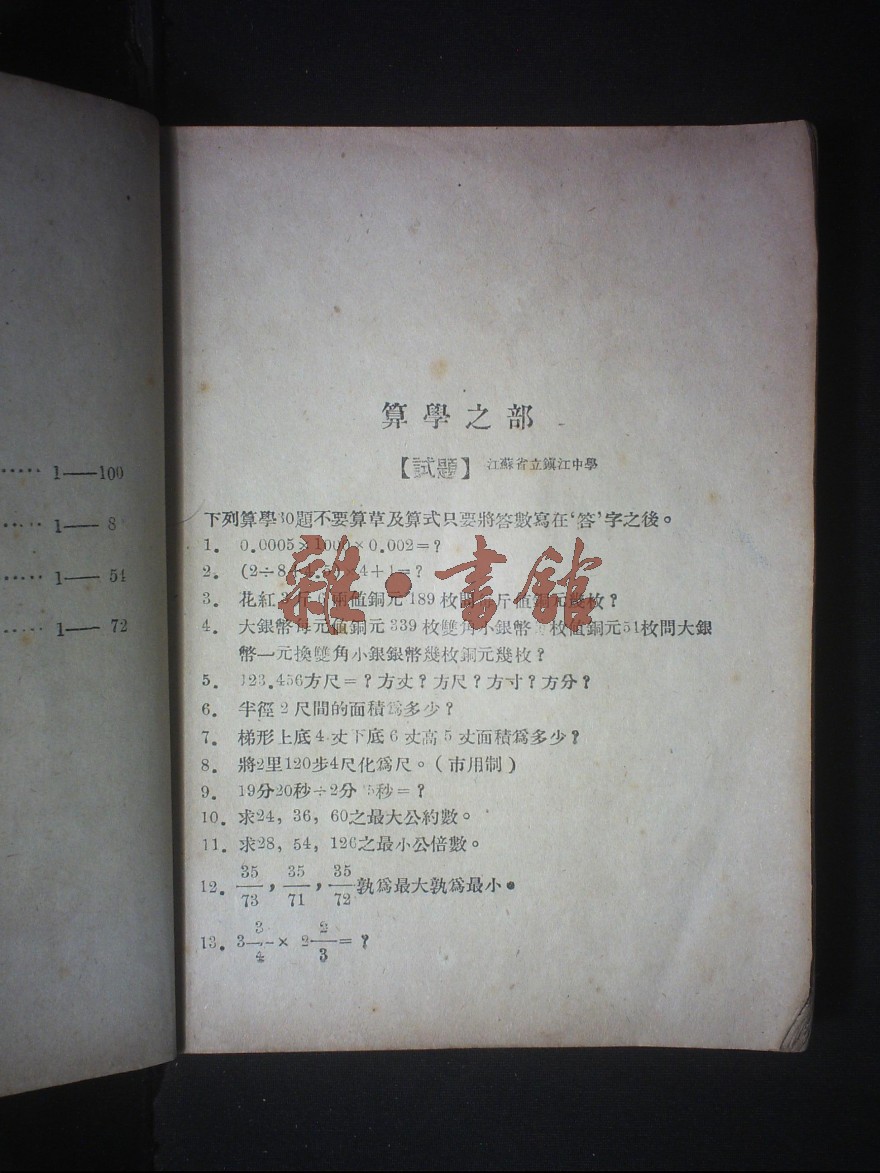 1——100
1—— 8
1—— 54
1—— 72
算學之部
【試題】 江蘇省立鎭江中學
下列算學30題不要算草及算式只要將答數寫在‘答’字之後。
1. 0.0005×1000×0.002=?
2. (2÷8 4+1=?
3. 花紅 斤6兩値銅元189枚問 斤値銅元幾枚?
4. 大銀幣每元値銅元339枚雙角小銀幣 枚値銅元51枚問大銀
幣一元換雙角小銀銀幣幾枚銅元幾枚?
5. 123.456方尺=?方丈?方尺?方寸?方分?
6. 半徑2尺間的面積爲多少?
7. 梯形上底4丈下底6丈高5丈面積爲多少?
8. 將2里120步4尺化爲尺。(市用制)
9. 19分20秒÷2分 5秒=?
10. 求24, 36, 60之最大公約數。
11. 求28, 54, 126之最小公倍數。
12. 35/73, 35/71, 35/72孰爲最大孰爲最小●
13. 3 3/4 × 2 2/3 = ?
雜·書館